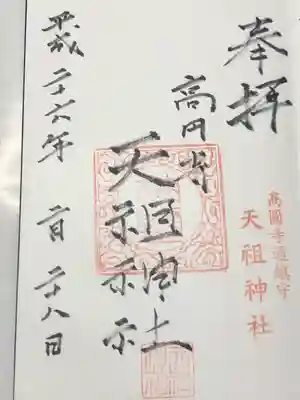 奉拝
高円寺
天祖神社
平成二十六年 月二十八日
高圓寺 鎮守
天祖神社